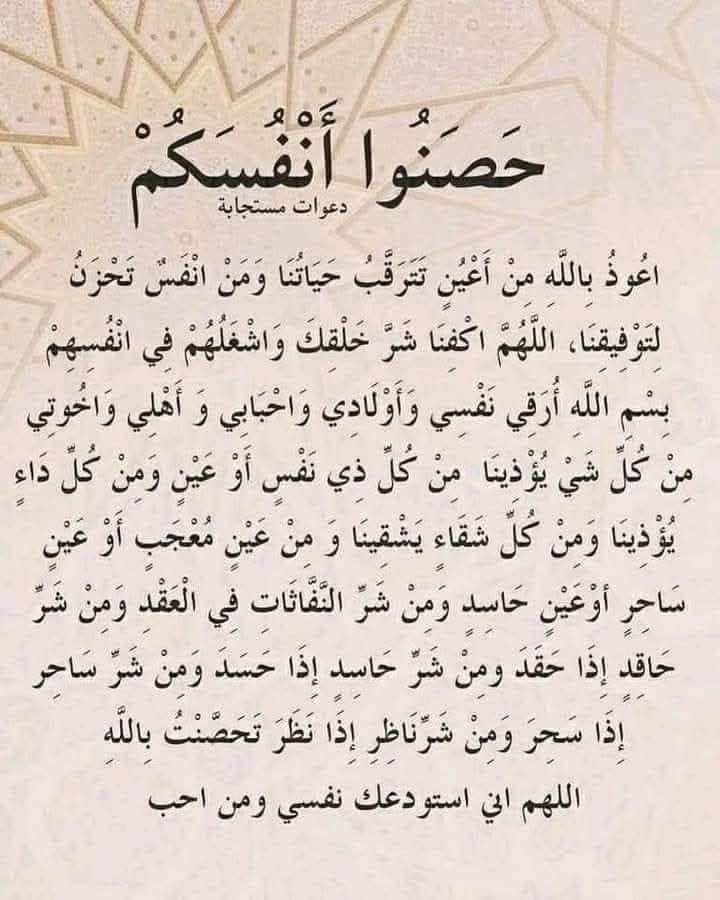 حَصَنُوا أَنْفُسَكُمْ
دعوات مستجابة
اعُوذُ بِاللَّهِ مِنْ أَعْيُنٍ تَتَرَقَّبُ حَيَاتُنَا وَمَنْ انْفَسٌ تَحْزَنُ
لِتَوْفِيقِنَا، اللَّهُمَّ اكْفِنَا شَرَّ خَلْقِكَ وَاشْغَلُهُمْ فِي انْفُسِهِمْ
بِسْمِ اللَّهِ أُرَقِي نَفْسِي وَأَوْلَادِي وَاحْبَابِي وَ أَهْلِي وَاخُوتِي
مِنْ كُلِّ شَيْ يُؤْذِينَا مِنْ كُلِّ ذِي نَفْسٍ أَوْ عَيْنٍ وَمِنْ كُلِّ دَاءٍ
يُؤْذِينَا وَمِنْ كُلِّ شَقَاءٍ يَشْقِينَا وَ مِنْ عَيْنٍ مُعْجَبٍ أَوْ عَيْنٍ
سَاحِرٍ أوْعَيْنٍ حَاسِدٍ وَمِنْ شَرِّ النَّفَّاثَاتِ فِي الْعَقْدِ وَمِنْ شَرِّ
حَاقِدٍ إِذَا حَقَدَ ومِنْ شَرِّ حَاسِدٍ إِذَا حَسَدَ وَمِنْ شَرِّ سَاحِر
إِذَا سَحِرَ وَمِنْ شَرِّنَاظِرِ إِذَا نَظَرَ تَحَصَّنْتُ بِاللَّهِ
اللهم اني استودعك نفسي ومن احب